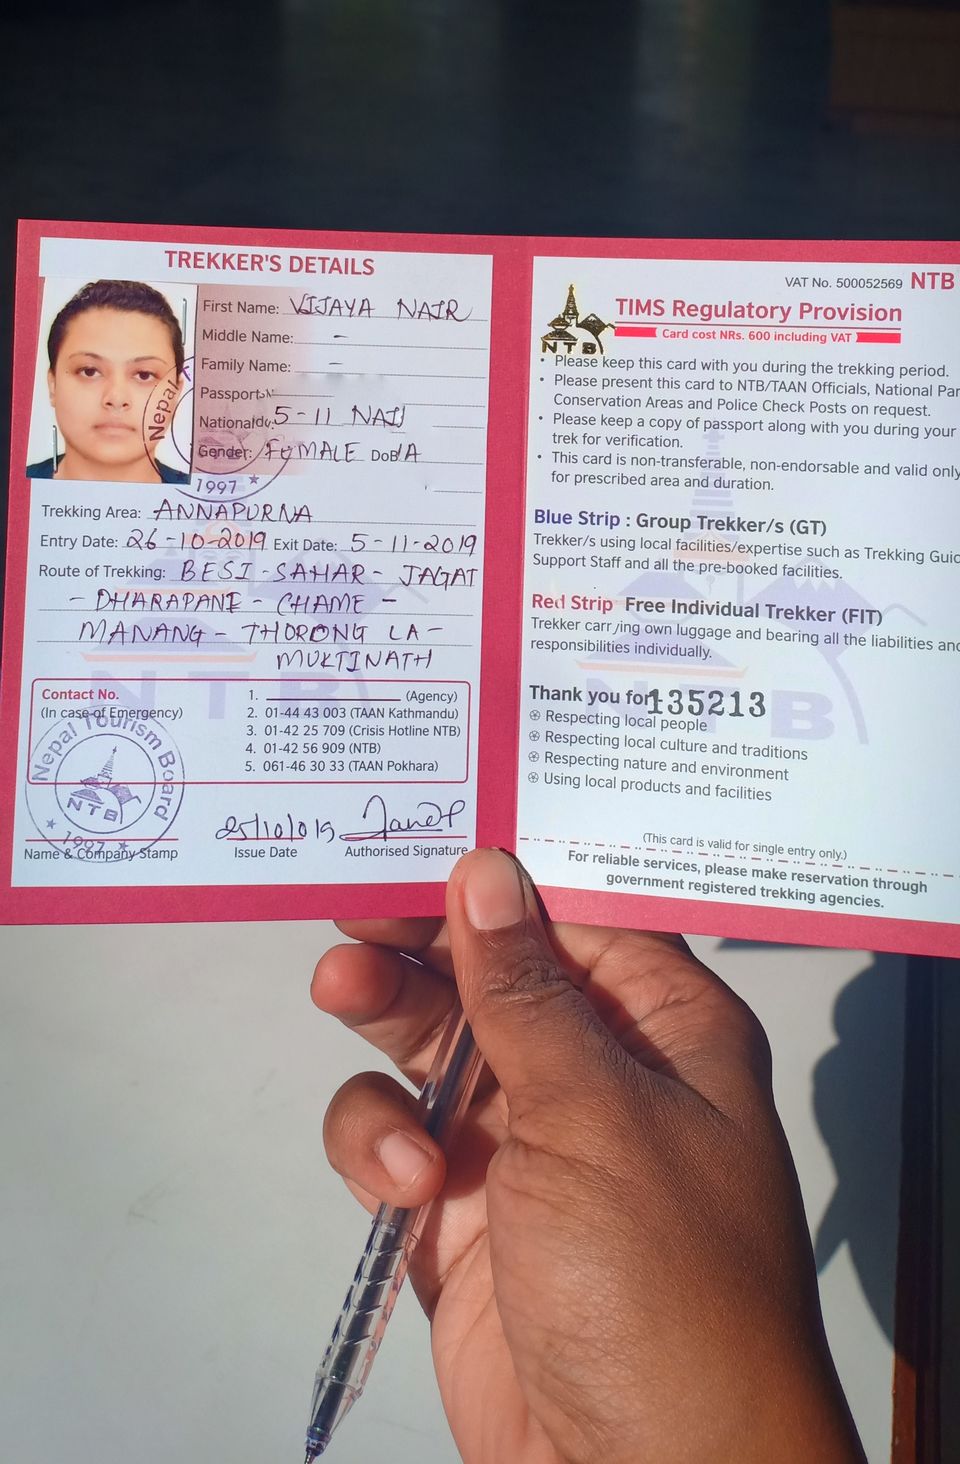 TREKKER'S DETAILS
First Name: VIJAYA NAIR
Middle Name: -
Family Name: -
Passport
5-11 NAIJ
Gender: FEMALE DoB/A
Nepal
1997
Trekking Area: ANNAPURNA
Entry Date: 26-10-2019 Exit Date: 5-11-2019
Route of Trekking: BESI-SAHAR- JAGAT
- DHARAPANI - CHAME -
MANANG - THORONG LA -
MUKTINATH
NTB
Contact No.
(In case of Emergency)
1. (Agency)
2. 01-44 43 003 (TAAN Kathmandu)
3. 01-42 25 709 (Crisis Hotline NTB)
4. 01-42 56 909 (NTB)
5. 061-46 30 33 (TAAN Pokhara)
Nepal Tourism Board
NTB
1997
25/10/019
Name & Company Stamp
Issue Date
Authorised Signature
VAT No. 500052569 NTB
NTB
TIMS Regulatory Provision
Card cost NRs. 600 including VAT
• Please keep this card with you during the trekking period.
• Please present this card to NTB/TAAN Officials, National Par
Conservation Areas and Police Check Posts on request.
• Please keep a copy of passport along with you during your
trek for verification.
• This card is non-transferable, non-endorsable and valid only
for prescribed area and duration.
Blue Strip : Group Trekker/s (GT)
Trekker/s using local facilities/expertise such as Trekking Guid
Support Staff and all the pre-booked facilities.
Red Strip Free Individual Trekker (FIT)
Trekker carrying own luggage and bearing all the liabilities and
responsibilities individually.
Thank you for 135213
Respecting local people
Respecting local culture and traditions
Respecting nature and environment
Using local products and facilities
(This card is valid for single entry only.)
For reliable services, please make reservation through
government registered trekking agencies.